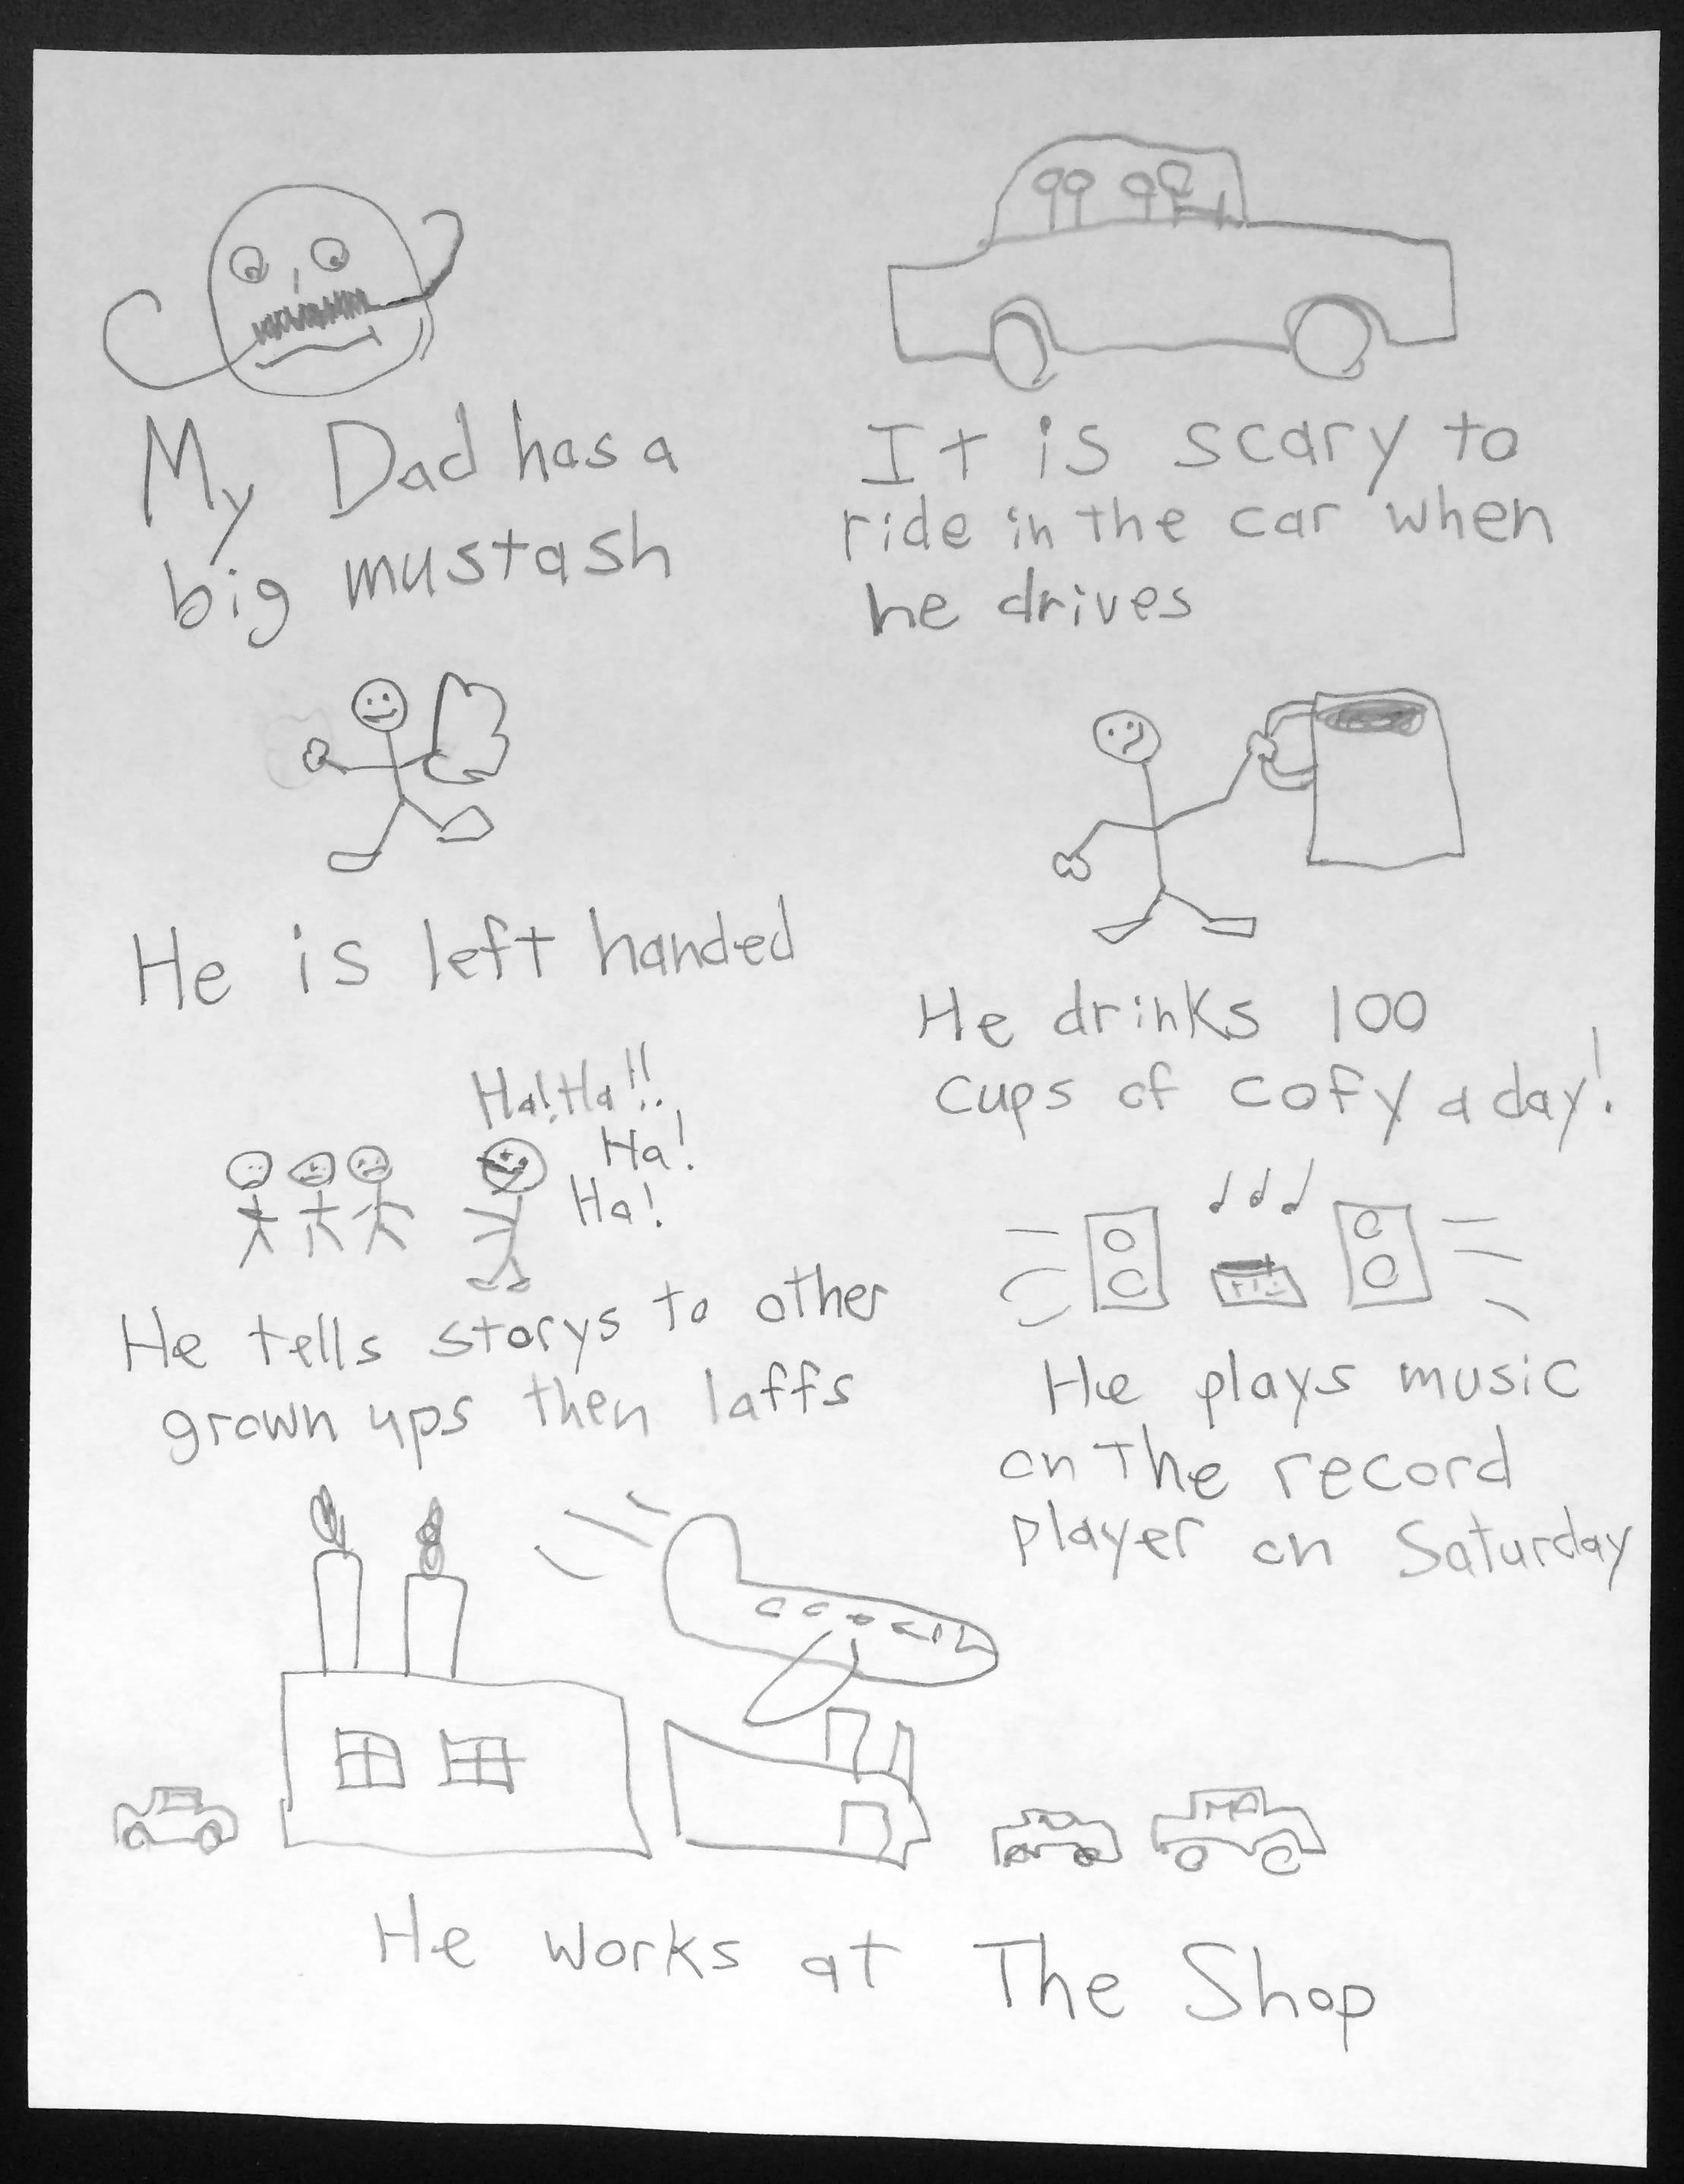 My Dad has a
big mustash
It is scary to
ride in the car when
he drives
He is left handed
He drinks 100
cups of cofy a day!
Ha! Ha!!
Ha!
Ha!
He tells storys to other
grown ups then laffs
He plays music
on the record
player on Saturday
He works at The Shop